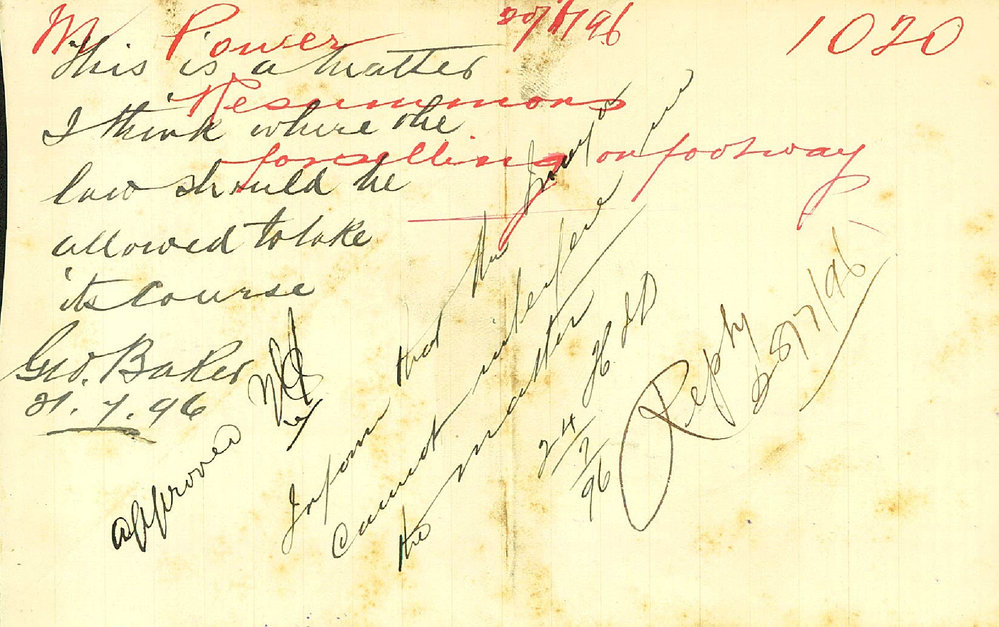 M Power
20/7/96
1020
Re summons
for selling on footway
This is a matter
I think where the
law should be
allowed to take
its course
Geo. Baker
21.7.96
approved
Inform that the Mayor
Cannot interfere in
the matter
24/7/96
Reply
25/7/96